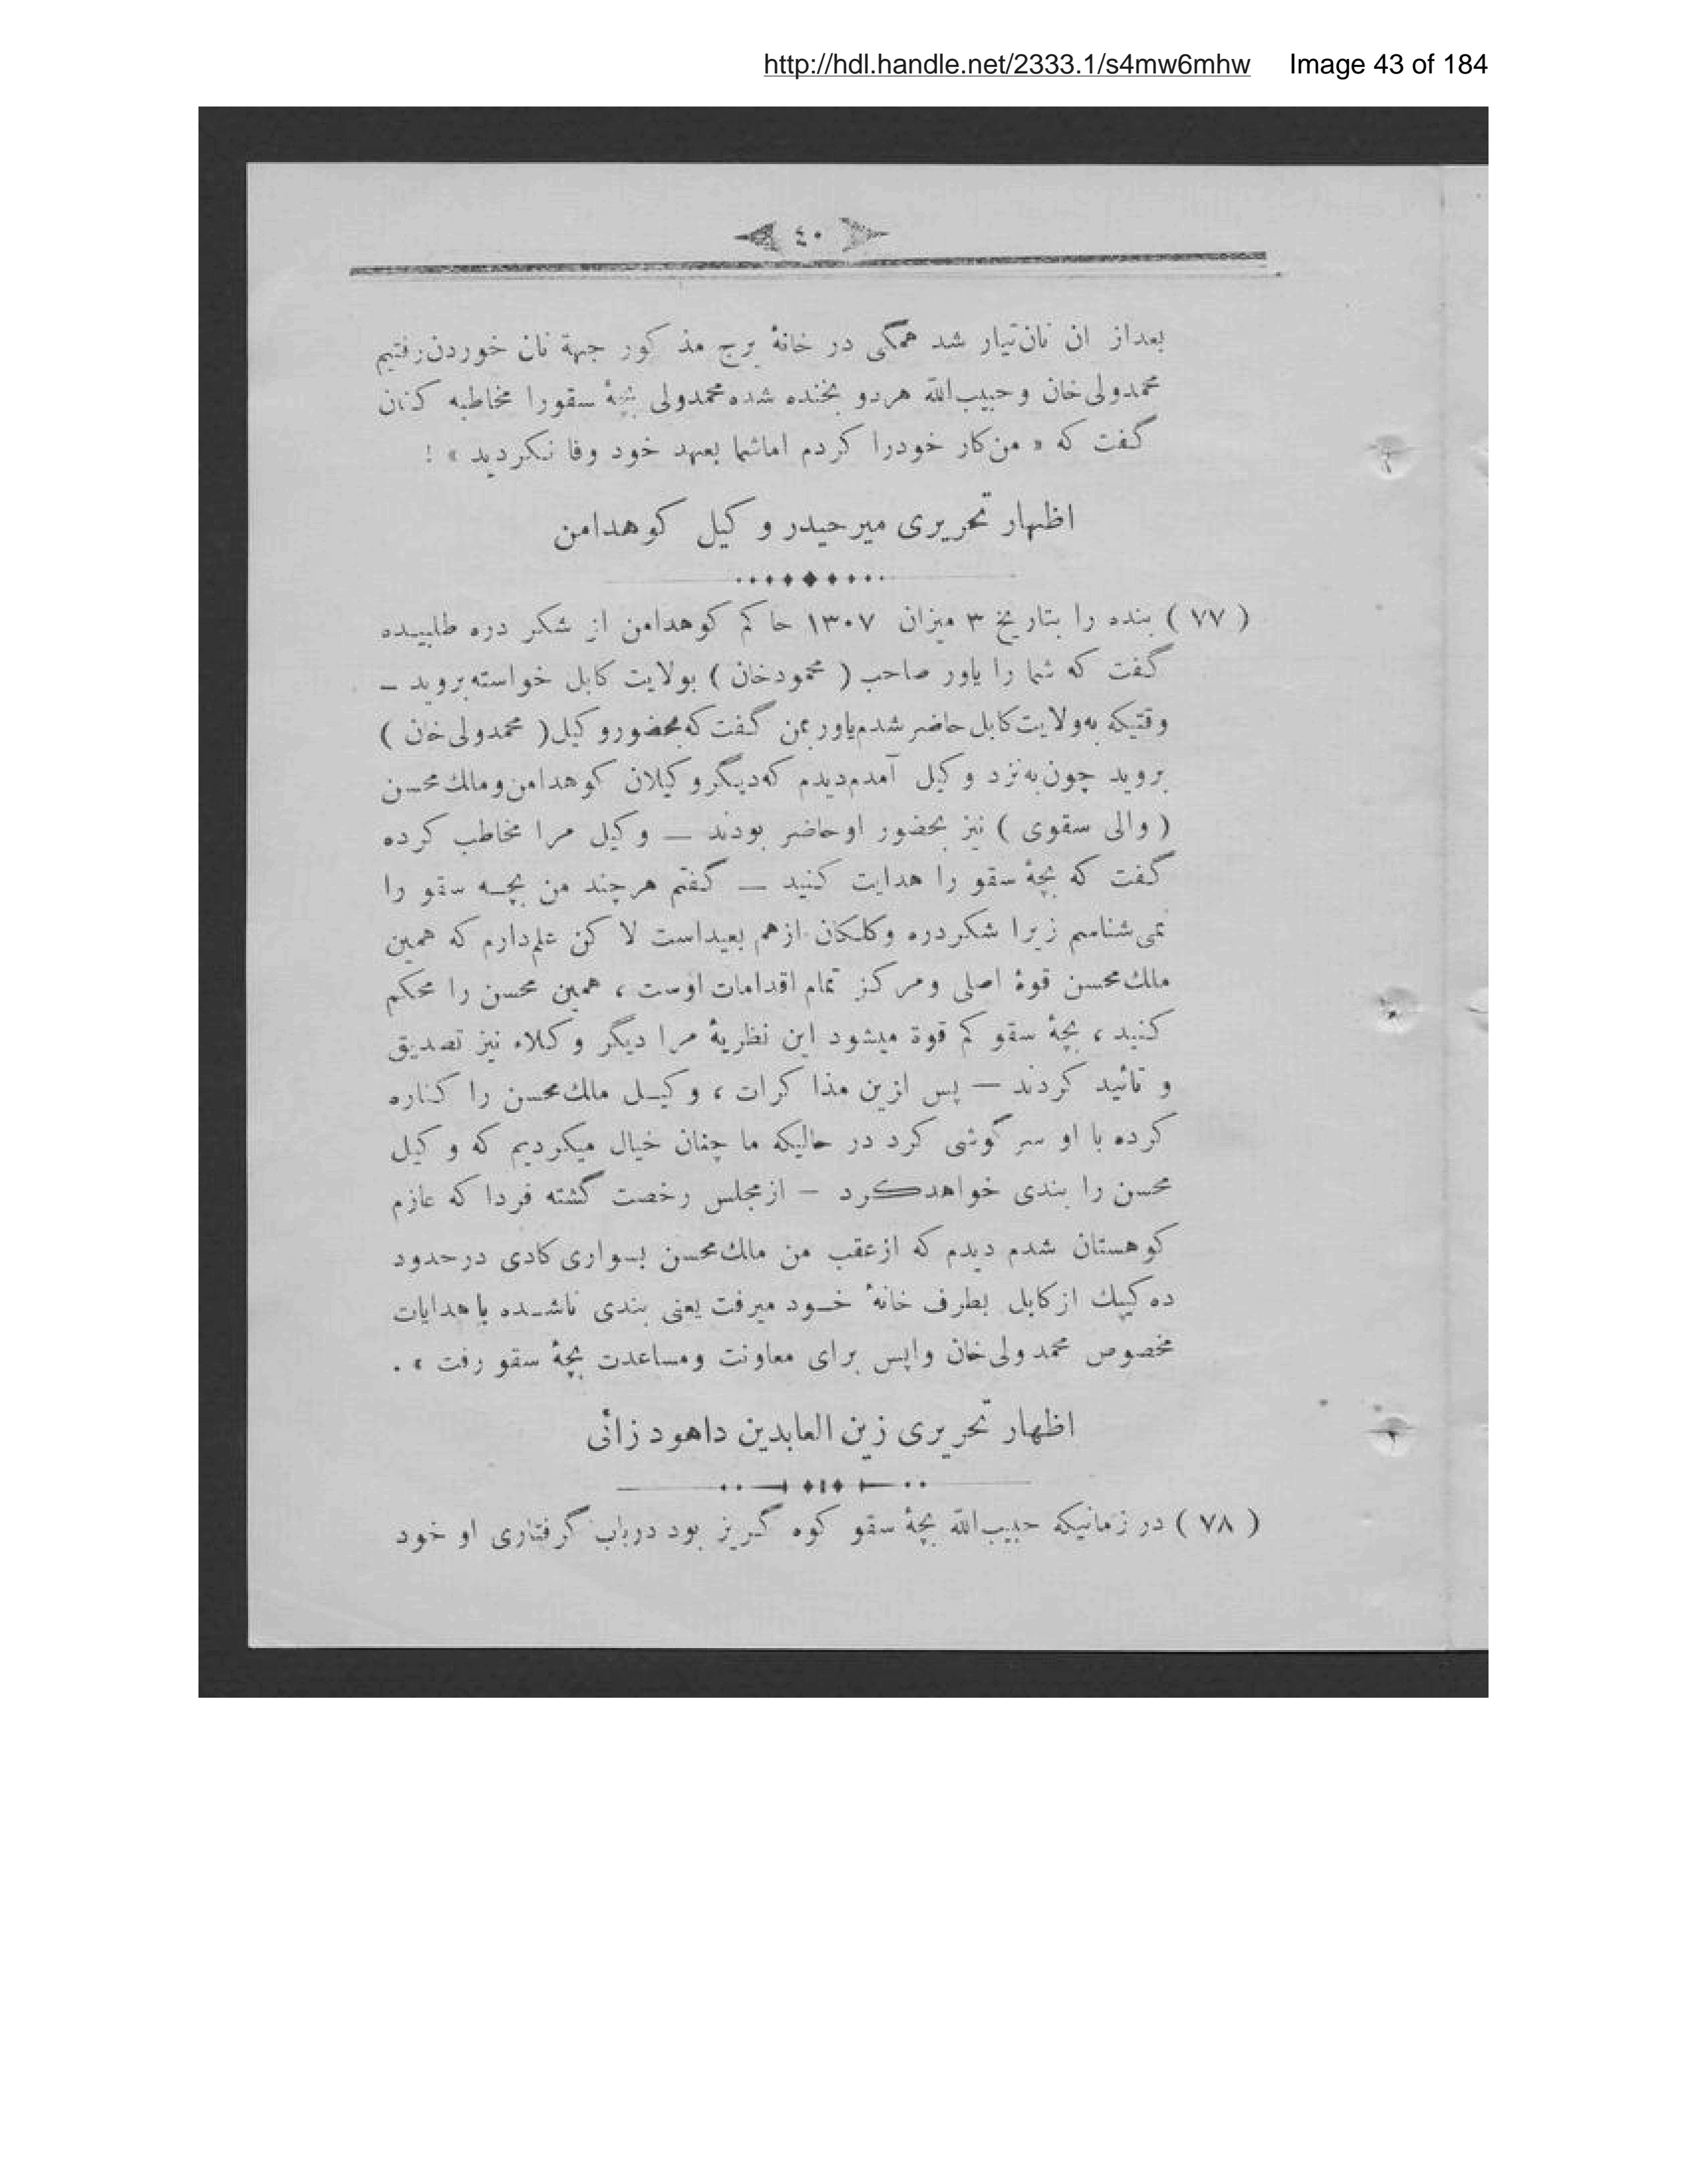 http://hdl.handle.net/2333.1/s4mw6mhw Image 43 of 184
٤٠
بعداز ان نان‌تیار شد همگی در خانهٔ برج مذ کور جهة نان خوردن‌رفتیم
محمدولی‌خان و حبیب‌الله هردو بخنده شده محمدولی بچهٔ سقورا مخاطبه کنان
گفت که « من‌کار خودرا کردم اماشما بعهد خود وفا نکردید » !
اظهار تحریری میرحیدر و کیل کوهدامن
( ٧٧ ) بنده را بتاریخ ٣ میزان ١٣٠٧ حاکم کوهدامن از شکر دره طلبیده
گفت که شما را یاور صاحب ( محمودخان ) بولایت کابل خواسته بروید –
وقتیکه به ولایت کابل حاضر شدم یاور بمن گفت که بحضور وکیل ( محمدولی خان )
بروید چون به نزد وکیل آمدم دیدم که دیگر وکیلان کوهدامن و مالك محسن
( والی سقوی ) نیز بحضور او حاضر بودند – وکیل مرا مخاطب کرده
گفت که بچهٔ سقو را هدایت کنید – گفتم هرچند من بچـه سقو را
نمی‌شناسم زیرا شکردره وکلکان ازهم بعیداست لا کن علم‌دارم که همین
مالك محسن قوهٔ اصلی ومرکز تمام اقدامات اوست ، همین محسن را محکم
کنید ، بچهٔ سقو کم قوة میشود این نظریهٔ مرا دیگر وکلاء نیز تصدیق
و تائید کردند – پس ازین مذا کرات ، وکیـل مالك محسن را کناره
کرده با او سر گوشی کرد در حالیکه ما چنان خیال میکردیم که و کیل
محسن را بندی خواهدکرد – ازمجلس رخصت گشته فردا که عازم
کوهستان شدم دیدم که ازعقب من مالك محسن بسواری کادی درحدود
ده کیپك ازکابل بطرف خانهٔ خـود میرفت یعنی بندی ناشـده با هدایات
مخصوص محمدولی‌خان واپس برای معاونت ومساعدت بچهٔ سقو رفت » .
اظهار تحریری زین العابدین داهود زائی
( ٧٨ ) در زمانیکه حبیب‌الله بچهٔ سقو کوه گریز بود درباب گرفتاری او خود